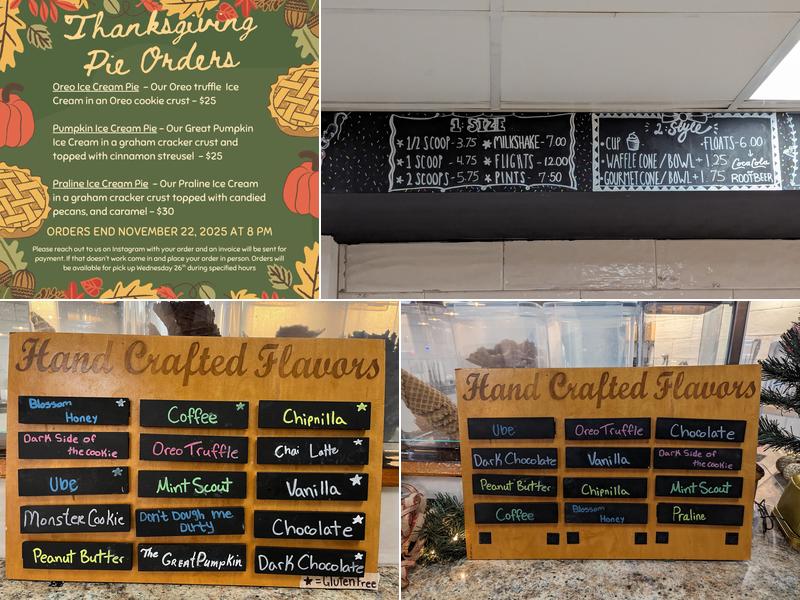 Thanksgiving
Pie Orders
Oreo Ice Cream Pie - Our Oreo truffle Ice
Cream in an Oreo cookie crust - $25
Pumpkin Ice Cream Pie - Our Great Pumpkin
Ice Cream in a graham cracker crust and
topped with cinnamon streusel - $25
Praline Ice Cream Pie - Our Praline Ice Cream
in a graham cracker crust topped with candied
pecans, and caramel - $30
ORDERS END NOVEMBER 22, 2025 AT 8 PM
Please reach out to us on Instagram with your order and an invoice will be sent for
payment. If that doesn't work come in and place your order in person. Orders will
be available for pick up Wednesday 26th during specified hours
1. SIZE
★ 1/2 SCOOP - 3.75 ★ MILKSHAKE - 7.00
★ 1 SCOOP - 4.75 ★ FLIGHTS - 12.00
★ 2 SCOOPS - 5.75 ★ PINTS - 7.50
2. Style
• CUP • FLOATS - 6.00
• WAFFLE CONE/BOWL + 1.25 Coca Cola
• GOURMET CONE/BOWL + 1.75 ROOTBEER
Hand Crafted Flavors
Blossom
Honey
Coffee
Chipnilla
Dark Side of
the cookie
Oreo Truffle
Chai Latte
Ube
Mint Scout
Vanilla
Monster Cookie
Don't Dough me
Dirty
Chocolate
Peanut Butter
The Great Pumpkin
Dark Chocolate
★ = Gluten Free
Hand Crafted Flavors
Ube
Oreo Truffle
Chocolate
Dark Chocolate
Vanilla
Dark Side of
the cookie
Peanut Butter
Chipnilla
Mint Scout
Coffee
Blossom
Honey
Praline